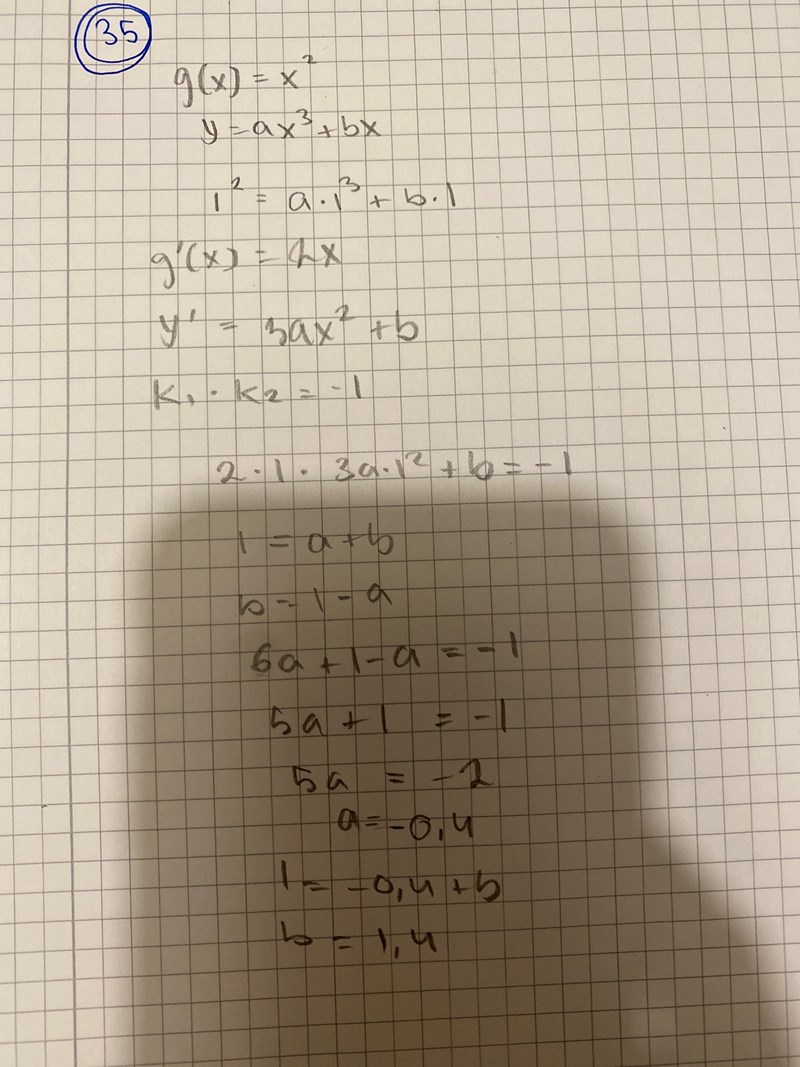 35
g(x) = x²
y = ax³ + bx
1² = a · 1³ + b · 1
g'(x) = 2x
y' = 3ax² + b
k₁ · k₂ = -1
2 · 1 · 3a · 1² + b = -1
1 = a + b
b = 1 - a
6a + 1 - a = -1
5a + 1 = -1
5a = -2
a = -0,4
1 = -0,4 + b
b = 1,4